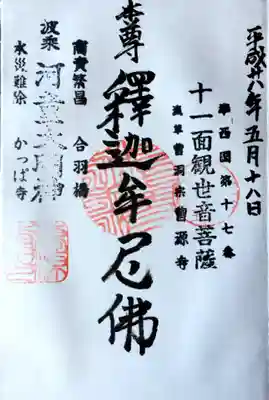 平成廿八年五月十八日
準西国第十七番
十一面観世音菩薩
浅草曹羽宗曹源寺
本尊
釋迦牟尼佛
商売繁昌 合羽橋
波乘 河童大明神
水災難除 かっぱ寺